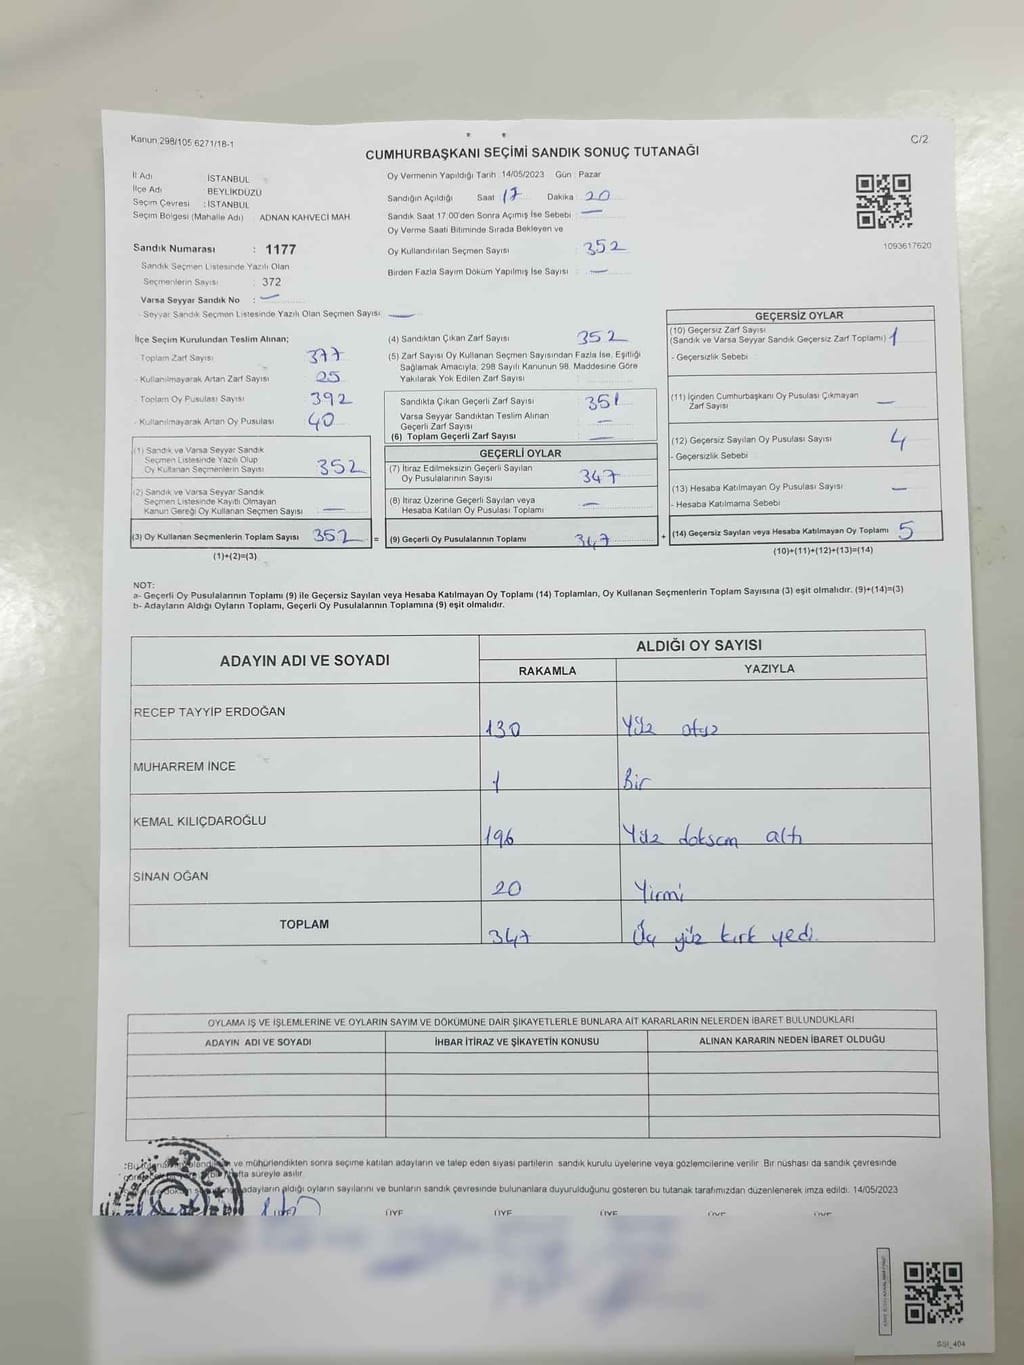 Kanun:298/105 6271/18-1
C/2
CUMHURBAŞKANI SEÇİMİ SANDIK SONUÇ TUTANAĞI
İl Adı İSTANBUL
İlçe Adı BEYLİKDÜZÜ
Seçim Çevresi : İSTANBUL
Seçim Bölgesi (Mahalle Adı) ADNAN KAHVECİ MAH
Sandık Numarası : 1177
Sandık Seçmen Listesinde Yazılı Olan
Seçmenlerin Sayısı : 372
Varsa Seyyar Sandık No : —
Seyyar Sandık Seçmen Listesinde Yazılı Olan Seçmen Sayısı —
Oy Vermenin Yapıldığı Tarih :14/05/2023 Gün : Pazar
Sandığın Açıldığı Saat 17 Dakika 20
Sandık Saat 17.00'den Sonra Açımış İse Sebebi —
Oy Verme Saati Bitiminde Sırada Bekleyen ve
Oy Kullandırılan Seçmen Sayısı 352
Birden Fazla Sayım Döküm Yapılmış İse Sayısı —
1093617620
İlçe Seçim Kurulundan Teslim Alınan;
Toplam Zarf Sayısı 377
Kullanılmayarak Artan Zarf Sayısı 25
Toplam Oy Pusulası Sayısı 392
Kullanılmayarak Artan Oy Pusulası 40
(1) Sandık ve Varsa Seyyar Sandık
Seçmen Listesinde Yazılı Olup
Oy Kullanan Seçmenlerin Sayısı 352
(2) Sandık ve Varsa Seyyar Sandık
Seçmen Listesinde Kayıtlı Olmayan
Kanun Gereği Oy Kullanan Seçmen Sayısı —
(3) Oy Kullanan Seçmenlerin Toplam Sayısı 352 =
(1)+(2)=(3)
(4) Sandıktan Çıkan Zarf Sayısı 352
(5) Zarf Sayısı Oy Kullanan Seçmen Sayısından Fazla İse, Eşitliği
Sağlamak Amacıyla; 298 Sayılı Kanunun 98. Maddesine Göre
Yakılarak Yok Edilen Zarf Sayısı
Sandıkta Çıkan Geçerli Zarf Sayısı 351
Varsa Seyyar Sandıktan Teslim Alınan
Geçerli Zarf Sayısı —
(6) Toplam Geçerli Zarf Sayısı —
GEÇERLİ OYLAR
(7) İtiraz Edilmeksizin Geçerli Sayılan
Oy Pusulalarının Sayısı 347
(8) İtiraz Üzerine Geçerli Sayılan veya
Hesaba Katılan Oy Pusulası Toplamı —
(9) Geçerli Oy Pusulalarının Toplamı 347 +
GEÇERSİZ OYLAR
(10) Geçersiz Zarf Sayısı
(Sandık ve Varsa Seyyar Sandık Geçersiz Zarf Toplamı) 1
- Geçersizlik Sebebi
(11) İçinden Cumhurbaşkanı Oy Pusulası Çıkmayan
Zarf Sayısı —
(12) Geçersiz Sayılan Oy Pusulası Sayısı 4
- Geçersizlik Sebebi
(13) Hesaba Katılmayan Oy Pusulası Sayısı —
- Hesaba Katılmama Sebebi
(14) Geçersiz Sayılan veya Hesaba Katılmayan Oy Toplamı 5
(10)+(11)+(12)+(13)=(14)
NOT:
a- Geçerli Oy Pusulalarının Toplamı (9) ile Geçersiz Sayılan veya Hesaba Katılmayan Oy Toplamı (14) Toplamları, Oy Kullanan Seçmenlerin Toplam Sayısına (3) eşit olmalıdır. (9)+(14)=(3)
b- Adayların Aldığı Oyların Toplamı, Geçerli Oy Pusulalarının Toplamına (9) eşit olmalıdır.
ADAYIN ADI VE SOYADI
ALDIĞI OY SAYISI
RAKAMLA YAZIYLA
RECEP TAYYİP ERDOĞAN 130 Yüz otuz
MUHARREM İNCE 1 Bir
KEMAL KILIÇDAROĞLU 196 Yüz doksan altı
SİNAN OĞAN 20 Yirmi
TOPLAM 347 Üç yüz kırk yedi.
OYLAMA İŞ VE İŞLEMLERİNE VE OYLARIN SAYIM VE DÖKÜMÜNE DAİR ŞİKAYETLERLE BUNLARA AİT KARARLARIN NELERDEN İBARET BULUNDUKLARI
ADAYIN ADI VE SOYADI İHBAR İTİRAZ VE ŞİKAYETİN KONUSU ALINAN KARARIN NEDEN İBARET OLDUĞU
ve mühürlendikten sonra seçime katılan adayların ve talep eden siyasi partilerin sandık kurulu üyelerine veya gözlemcilerine verilir Bir nüshası da sandık çevresinde
hafta süreyle asılır
adayların aldığı oyların sayılarını ve bunların sandık çevresinde bulunanlara duyurulduğunu gösteren bu tutanak tarafımızdan düzenlenerek imza edildi. 14/05/2023
ÜYE ÜYE ÜYE ÜYE ÜYE